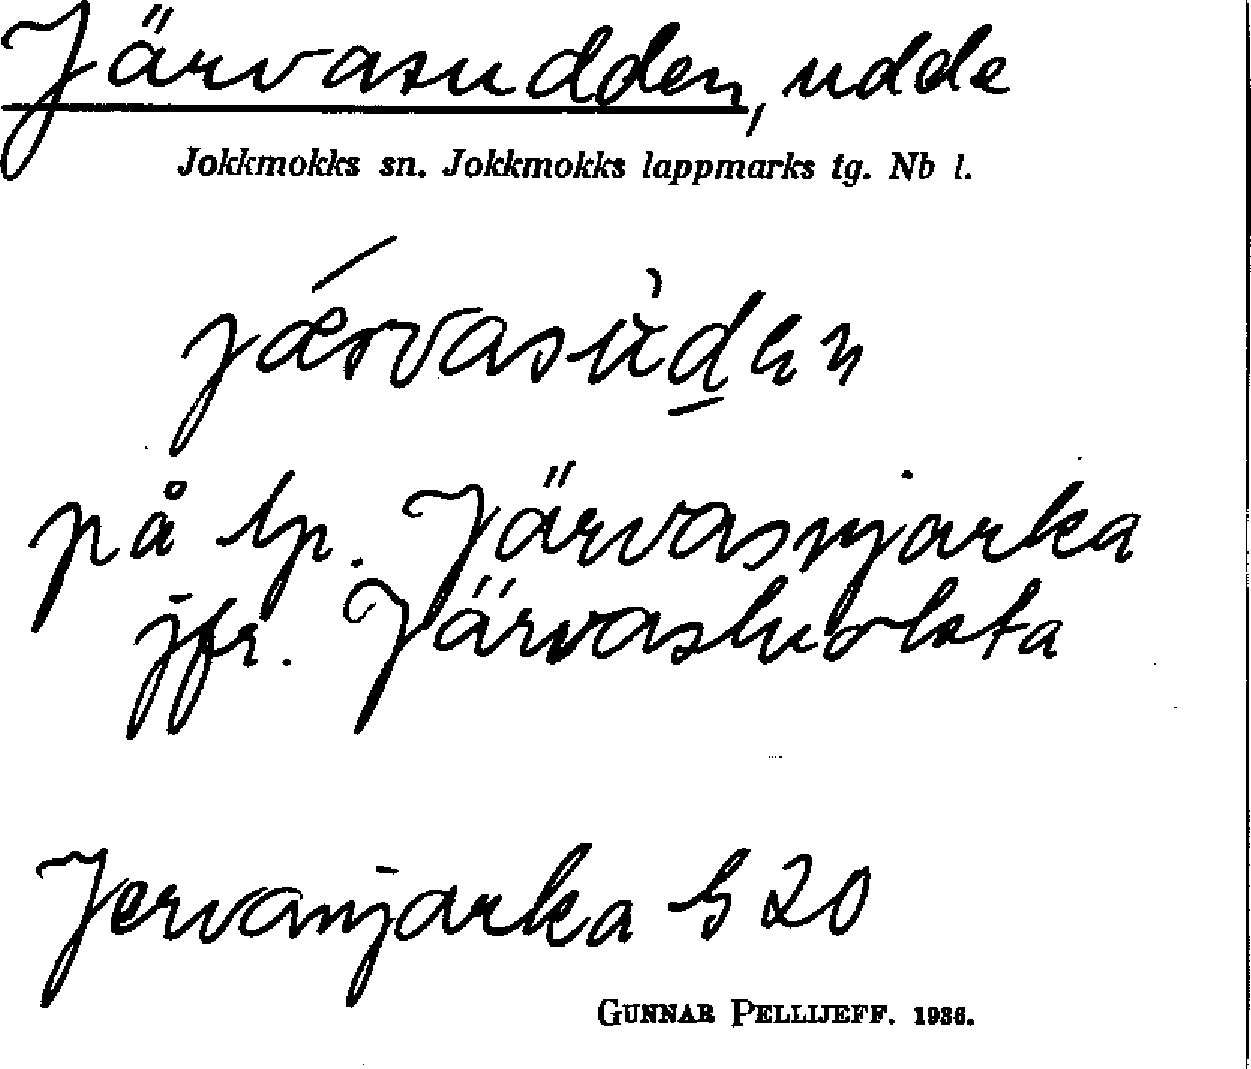 Järvasudden, udde
Jokkmokks sn. Jokkmokks lappmarks tg. Nb l.
på lp. Järvasnjarka
jfr. Järvasluokta
Jervanjarka G 20
GUNNAR PELLIJEFF. 1936.